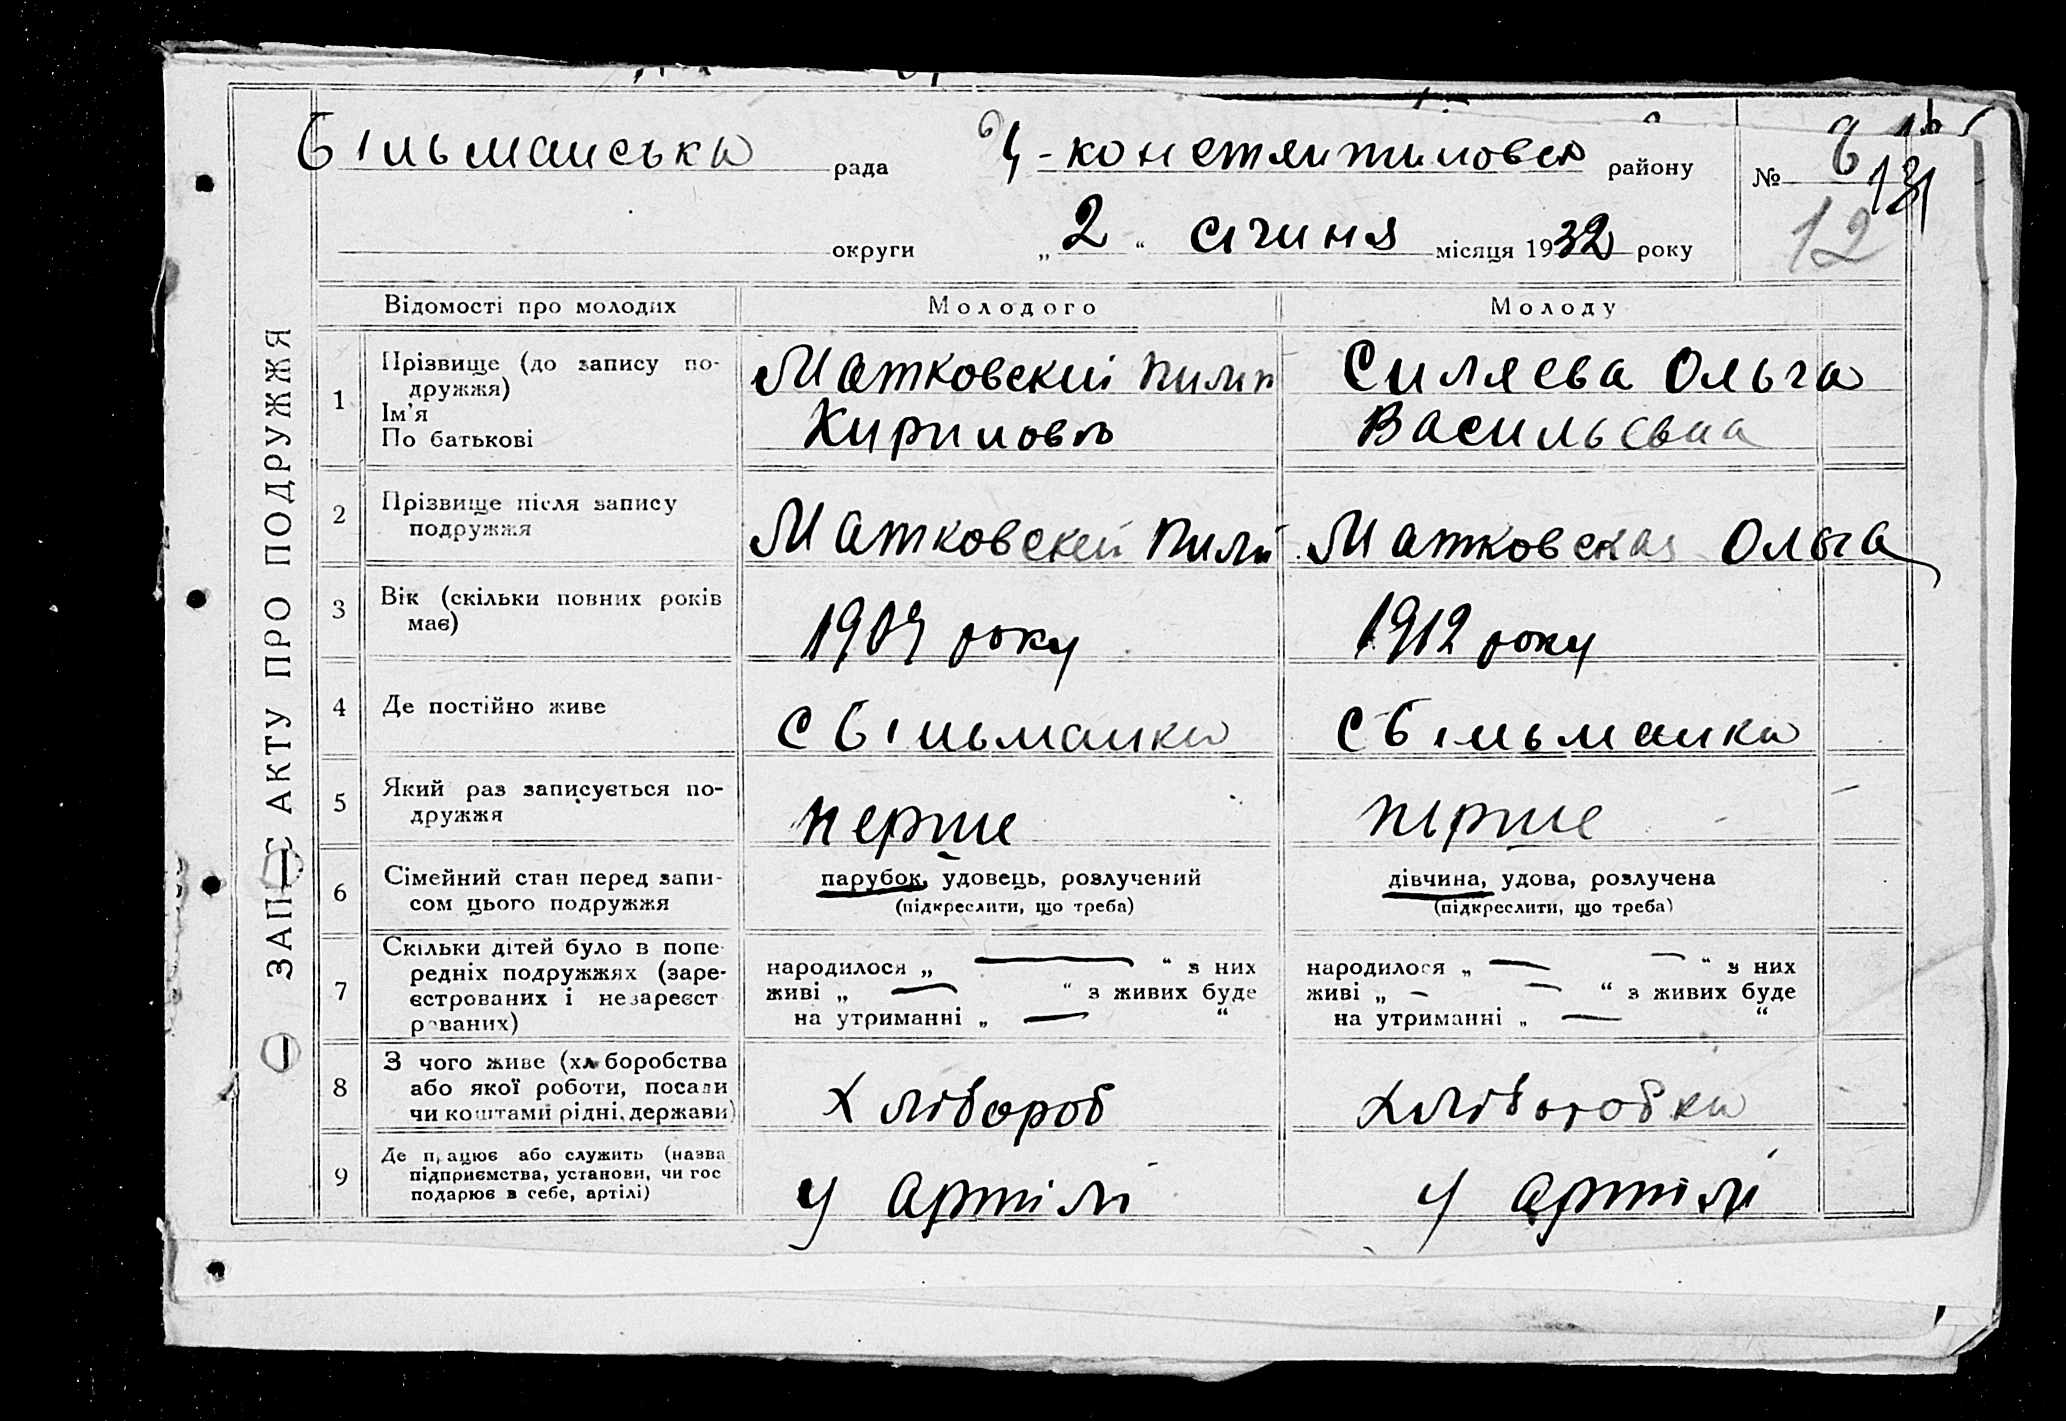 Більманська рада Ц-констянтиновся району № 6
округи „2“ січиня місяця 1932 року 12
ЗАПИС АКТУ ПРО ПОДРУЖЖЯ
Відомості про молодих Молодого Молоду
1 Прізвище (до запису по-
дружжя)
Ім'я
По батькові
Матковский Пилип
Кирилови
Силяєва Ольга
Васильєвна
2 Прізвище після запису
подружжя
Матковский Пили Матковская Ольга
3 Вік (скільки повних років
має)
1909 року 1912 року
4 Де постійно живе с Більманка с Більманка
5 Який раз записується по-
дружжя
перше перше
6 Сімейний стан перед запи-
сом цього подружжя
парубок, удовець, розлучений
(підкреслити, що треба)
дівчина, удова, розлучена
(підкреслити, що треба)
7 Скільки дітей було в попе-
редніх подружжях (заре-
єстрованих і незареєст
рованих)
народилося „ — “ з них
живі „ — “ з живих буде
на утриманні „ — “
народилося „ — “ з них
живі „ — “ з живих буде
на утриманні „ — “
8 З чого живе (хліборобства
або якої роботи, посади
чи коштами рідні, держави)
хлібороб хліборобка
9 Де працює або служить (назва
підприємства, установи, чи гос
подарює в себе, артілі)
у артілі у артілі